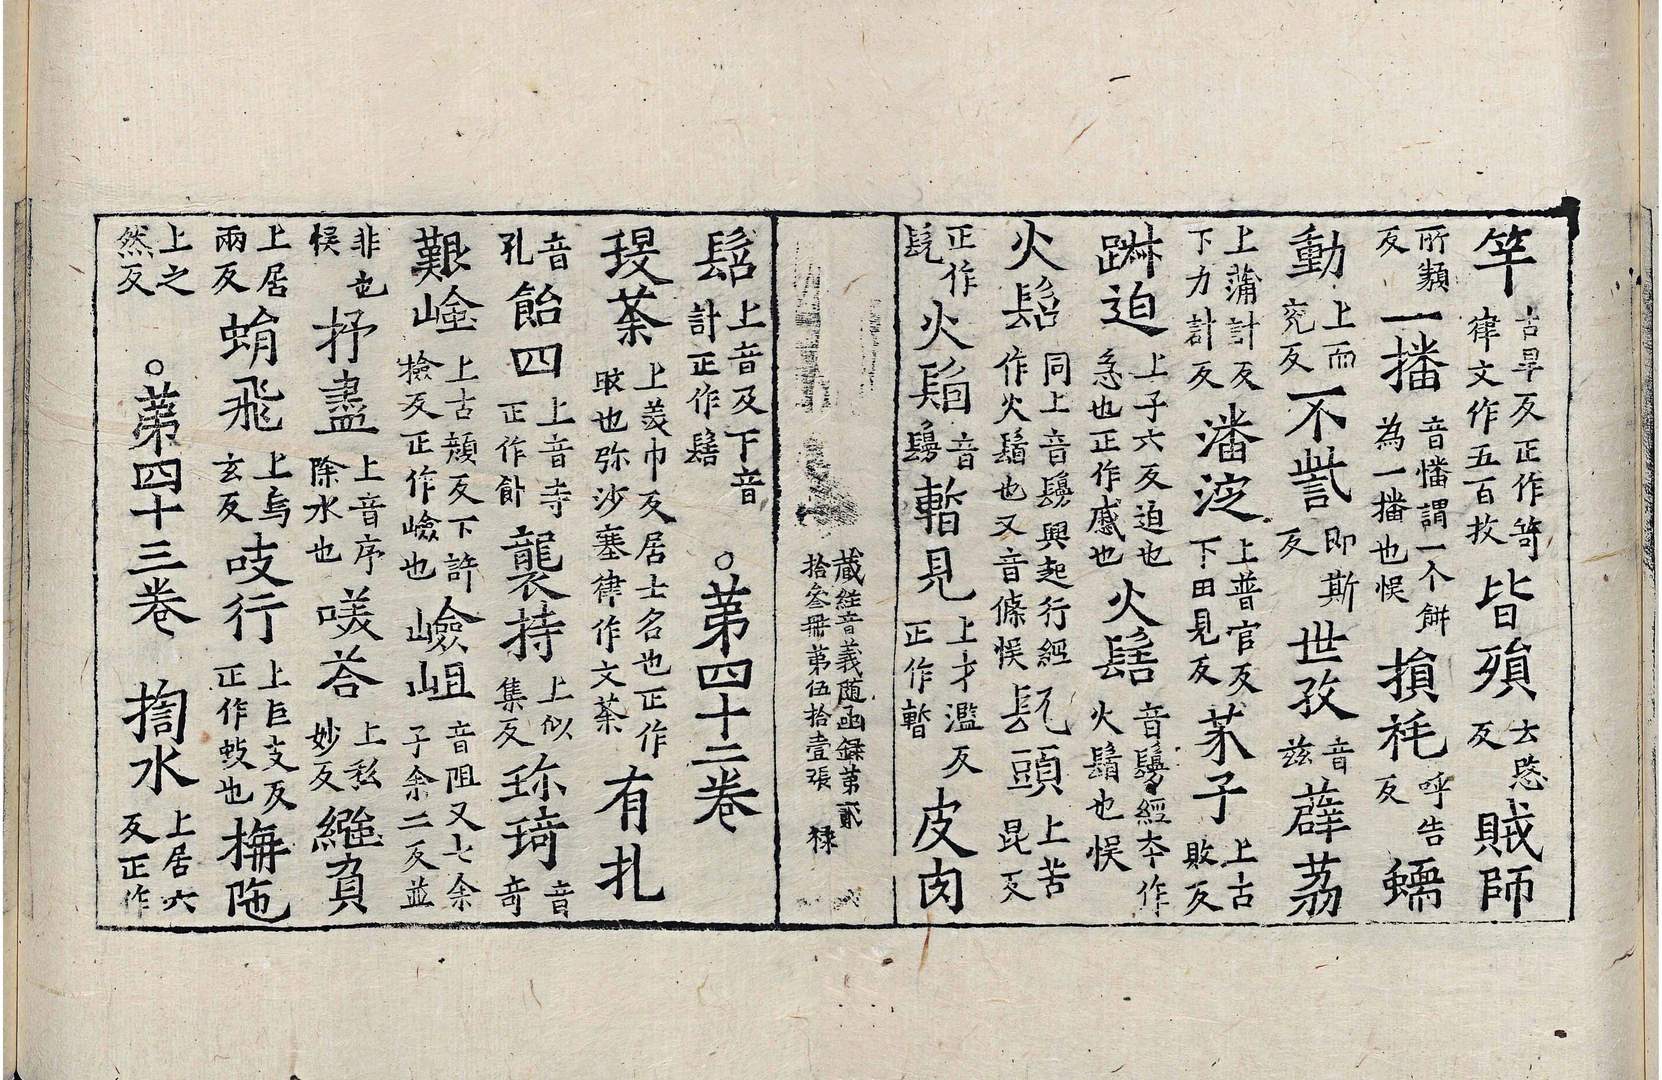 竿古旱反正作笴律文作五百抆皆殞云愍反賊師
所類反一播音憣謂一个餅為一播也悮損秏呼告反蠕
動上而兖反不訾即斯反世孜音兹薜荔
上蒲計反下力計反潘淀上普官反下田見反苿子上古敗反
踧迫上子六反迫也急也正作慼也火䯻音鬘經夲作火鬚也悮
火髫同上音鬘興起行經作火鬚也又音條悮髡頭上苦昆反
正作髡火䯻音鬘暫見上才濫反正作暫皮肉
藏經音義随函録第貳拾叄冊第伍拾壹張
髫上音及下音計正作髻。第四十二卷
琝荼上美巾反居士名也正作㪉也弥沙塞律作文荼有扎
音孔飴四上音寺正作飤襲持上似集反珎琦音奇
艱嶮上古頑反下許撿反正作嶮也嶮岨音阻又七余子余二反並
非也悮抒盡上音序除水也㗛荅上私妙反繦負
上居兩反蜎飛上烏玄反吱行上巨支反正作蚑也撫陁
上之然反。第四十三卷掬水上居六反正作